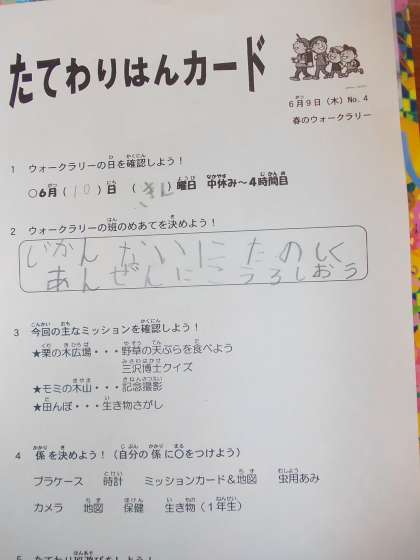 たてわりはんカード
6月9日（木）No.4
春のウォークラリー
1 ウォークラリーの日を確認しよう！
○6月（10）日（きん）曜日 中休み～4時間目
2 ウォークラリーの班のめあてを決めよう！
じかんないにたのしく
あんぜんにこうろしおう
3 今回の主なミッションを確認しよう！
★栗の木広場・・・野草の天ぷらを食べよう
三沢博士クイズ
★モミの木山・・・記念撮影
★田んぼ・・・生き物さがし
4 係を決めよう！（自分の係に○をつけよう）
ブラケース 時計 ミッションカード＆地図 虫用あみ
カメラ 地図 保健 生き物（1年生）